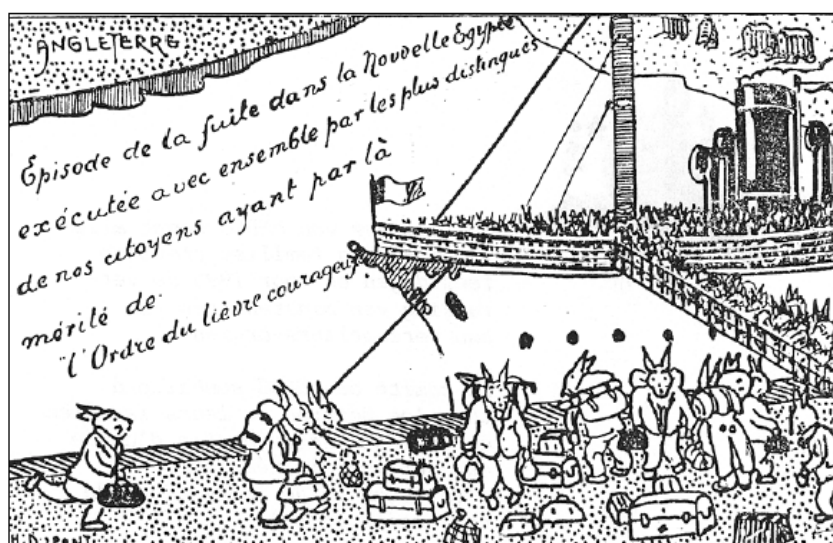 ANGLETERRE
Episode de la fuite dans la Nouvelle Egypte
exécutée avec ensemble par les plus distingués
de nos citoyens ayant par là
mérité de
"l'Ordre du lièvre courageux!